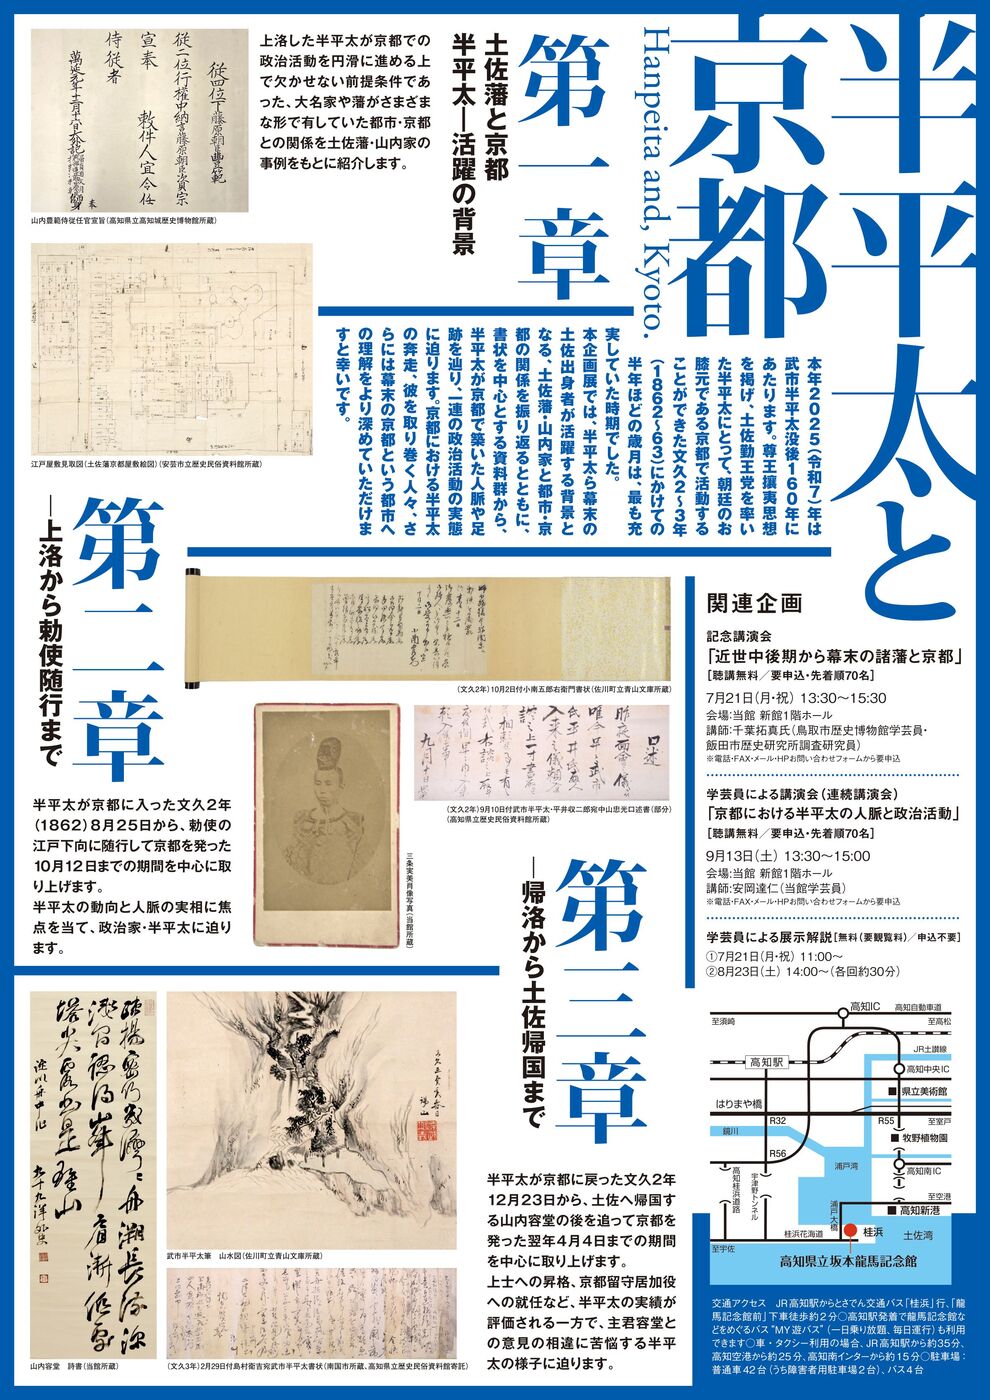 半平太と
京都
Hanpeita and, Kyoto.
本年2025(令和7)年は
武市半平太没後160年に
あたります。尊王攘夷思想
を掲げ、土佐勤王党を率い
た半平太にとって、朝廷のお
膝元である京都で活動する
ことができた文久2〜3年
(1862〜63)にかけての
半年ほどの歳月は、最も充
実していた時期でした。
本企画展では、半平太ら幕末の
土佐出身者が活躍する背景と
なる、土佐藩・山内家と都市・京
都の関係を振り返るとともに、
書状を中心とする資料群から、
半平太が京都で築いた人脈や足
跡を辿り、一連の政治活動の実態
に迫ります。京都における半平太
の奔走、彼を取り巻く人々、さ
らには幕末の京都という都市へ
の理解をより深めていただけま
すと幸いです。
第一章
土佐藩と京都
半平太―活躍の背景
上洛した半平太が京都での
政治活動を円滑に進める上
で欠かせない前提条件であ
った、大名家や藩がさまざま
な形で有していた都市・京都
との関係を土佐藩・山内家の
事例をもとに紹介します。
従四位下藤原朝臣豊範
従二位行権中納言藤原朝臣資宗
宣奉 敕件人宜令任
侍従者
山内豊範侍従任官宣旨(高知県立高知城歴史博物館所蔵)
江戸屋敷見取図(土佐藩京都屋敷絵図)(安芸市立歴史民俗資料館所蔵)
第二章
―上洛から勅使随行まで
半平太が京都に入った文久2年
(1862)8月25日から、勅使の
江戸下向に随行して京都を発った
10月12日までの期間を中心に取
り上げます。
半平太の動向と人脈の実相に焦
点を当て、政治家・半平太に迫り
ます。
(文久2年)10月2日付小南五郎右衛門書状(佐川町立青山文庫所蔵)
口述
九月十日
(文久2年)9月10日付武市半平太・平井収二郎宛中山忠光口述書(部分)
(高知県立歴史民俗資料館所蔵)
三条実美肖像写真(当館所蔵)
第三章
―帰洛から土佐帰国まで
半平太が京都に戻った文久2年
12月23日から、土佐へ帰国す
る山内容堂の後を追って京都を
発った翌年4月4日までの期間
を中心に取り上げます。
上士への昇格、京都留守居加役
への就任など、半平太の実績が
評価される一方で、主君容堂と
の意見の相違に苦悩する半平
太の様子に迫ります。
山内容堂 詩書(当館所蔵)
武市半平太筆 山水図(佐川町立青山文庫所蔵)
(文久3年)2月29日付島村衛吉宛武市半平太書状(南国市所蔵、高知県立歴史民俗資料館寄託)
関連企画
記念講演会
「近世中後期から幕末の諸藩と京都」
[聴講無料/要申込・先着順70名]
7月21日(月・祝) 13:30〜15:30
会場:当館 新館1階ホール
講師:千葉拓真氏(鳥取市歴史博物館学芸員・
飯田市歴史研究所調査研究員)
※電話・FAX・メール・HPお問い合わせフォームから要申込
学芸員による講演会(連続講演会)
「京都における半平太の人脈と政治活動」
[聴講無料/要申込・先着順70名]
9月13日(土) 13:30〜15:00
会場:当館 新館1階ホール
講師:安岡達仁(当館学芸員)
※電話・FAX・メール・HPお問い合わせフォームから要申込
学芸員による展示解説[無料(要観覧料)/申込不要]
①7月21日(月・祝) 11:00〜
②8月23日(土) 14:00〜(各回約30分)
高知IC
高知自動車道
至須崎
至高松
JR土讃線
高知駅
高知中央IC
県立美術館
はりまや橋
R32
R55
至室戸
鏡川
牧野植物園
R56
浦戸湾
高知南IC
高知桂浜道路
宇津野トンネル
浦戸大橋
至空港
高知新港
桂浜花海道
桂浜
土佐湾
至宇佐
高知県立坂本龍馬記念館
交通アクセス JR高知駅からとさでん交通バス「桂浜」行、「龍
馬記念館前」下車徒歩約2分〇高知駅発着で龍馬記念館な
どをめぐるバス“MY遊バス”(一日乗り放題、毎日運行)も利用
できます〇車・タクシー利用の場合、JR高知駅から約35分、
高知空港から約25分、高知南インターから約15分〇駐車場:
普通車42台(うち障害者用駐車場2台)、バス4台